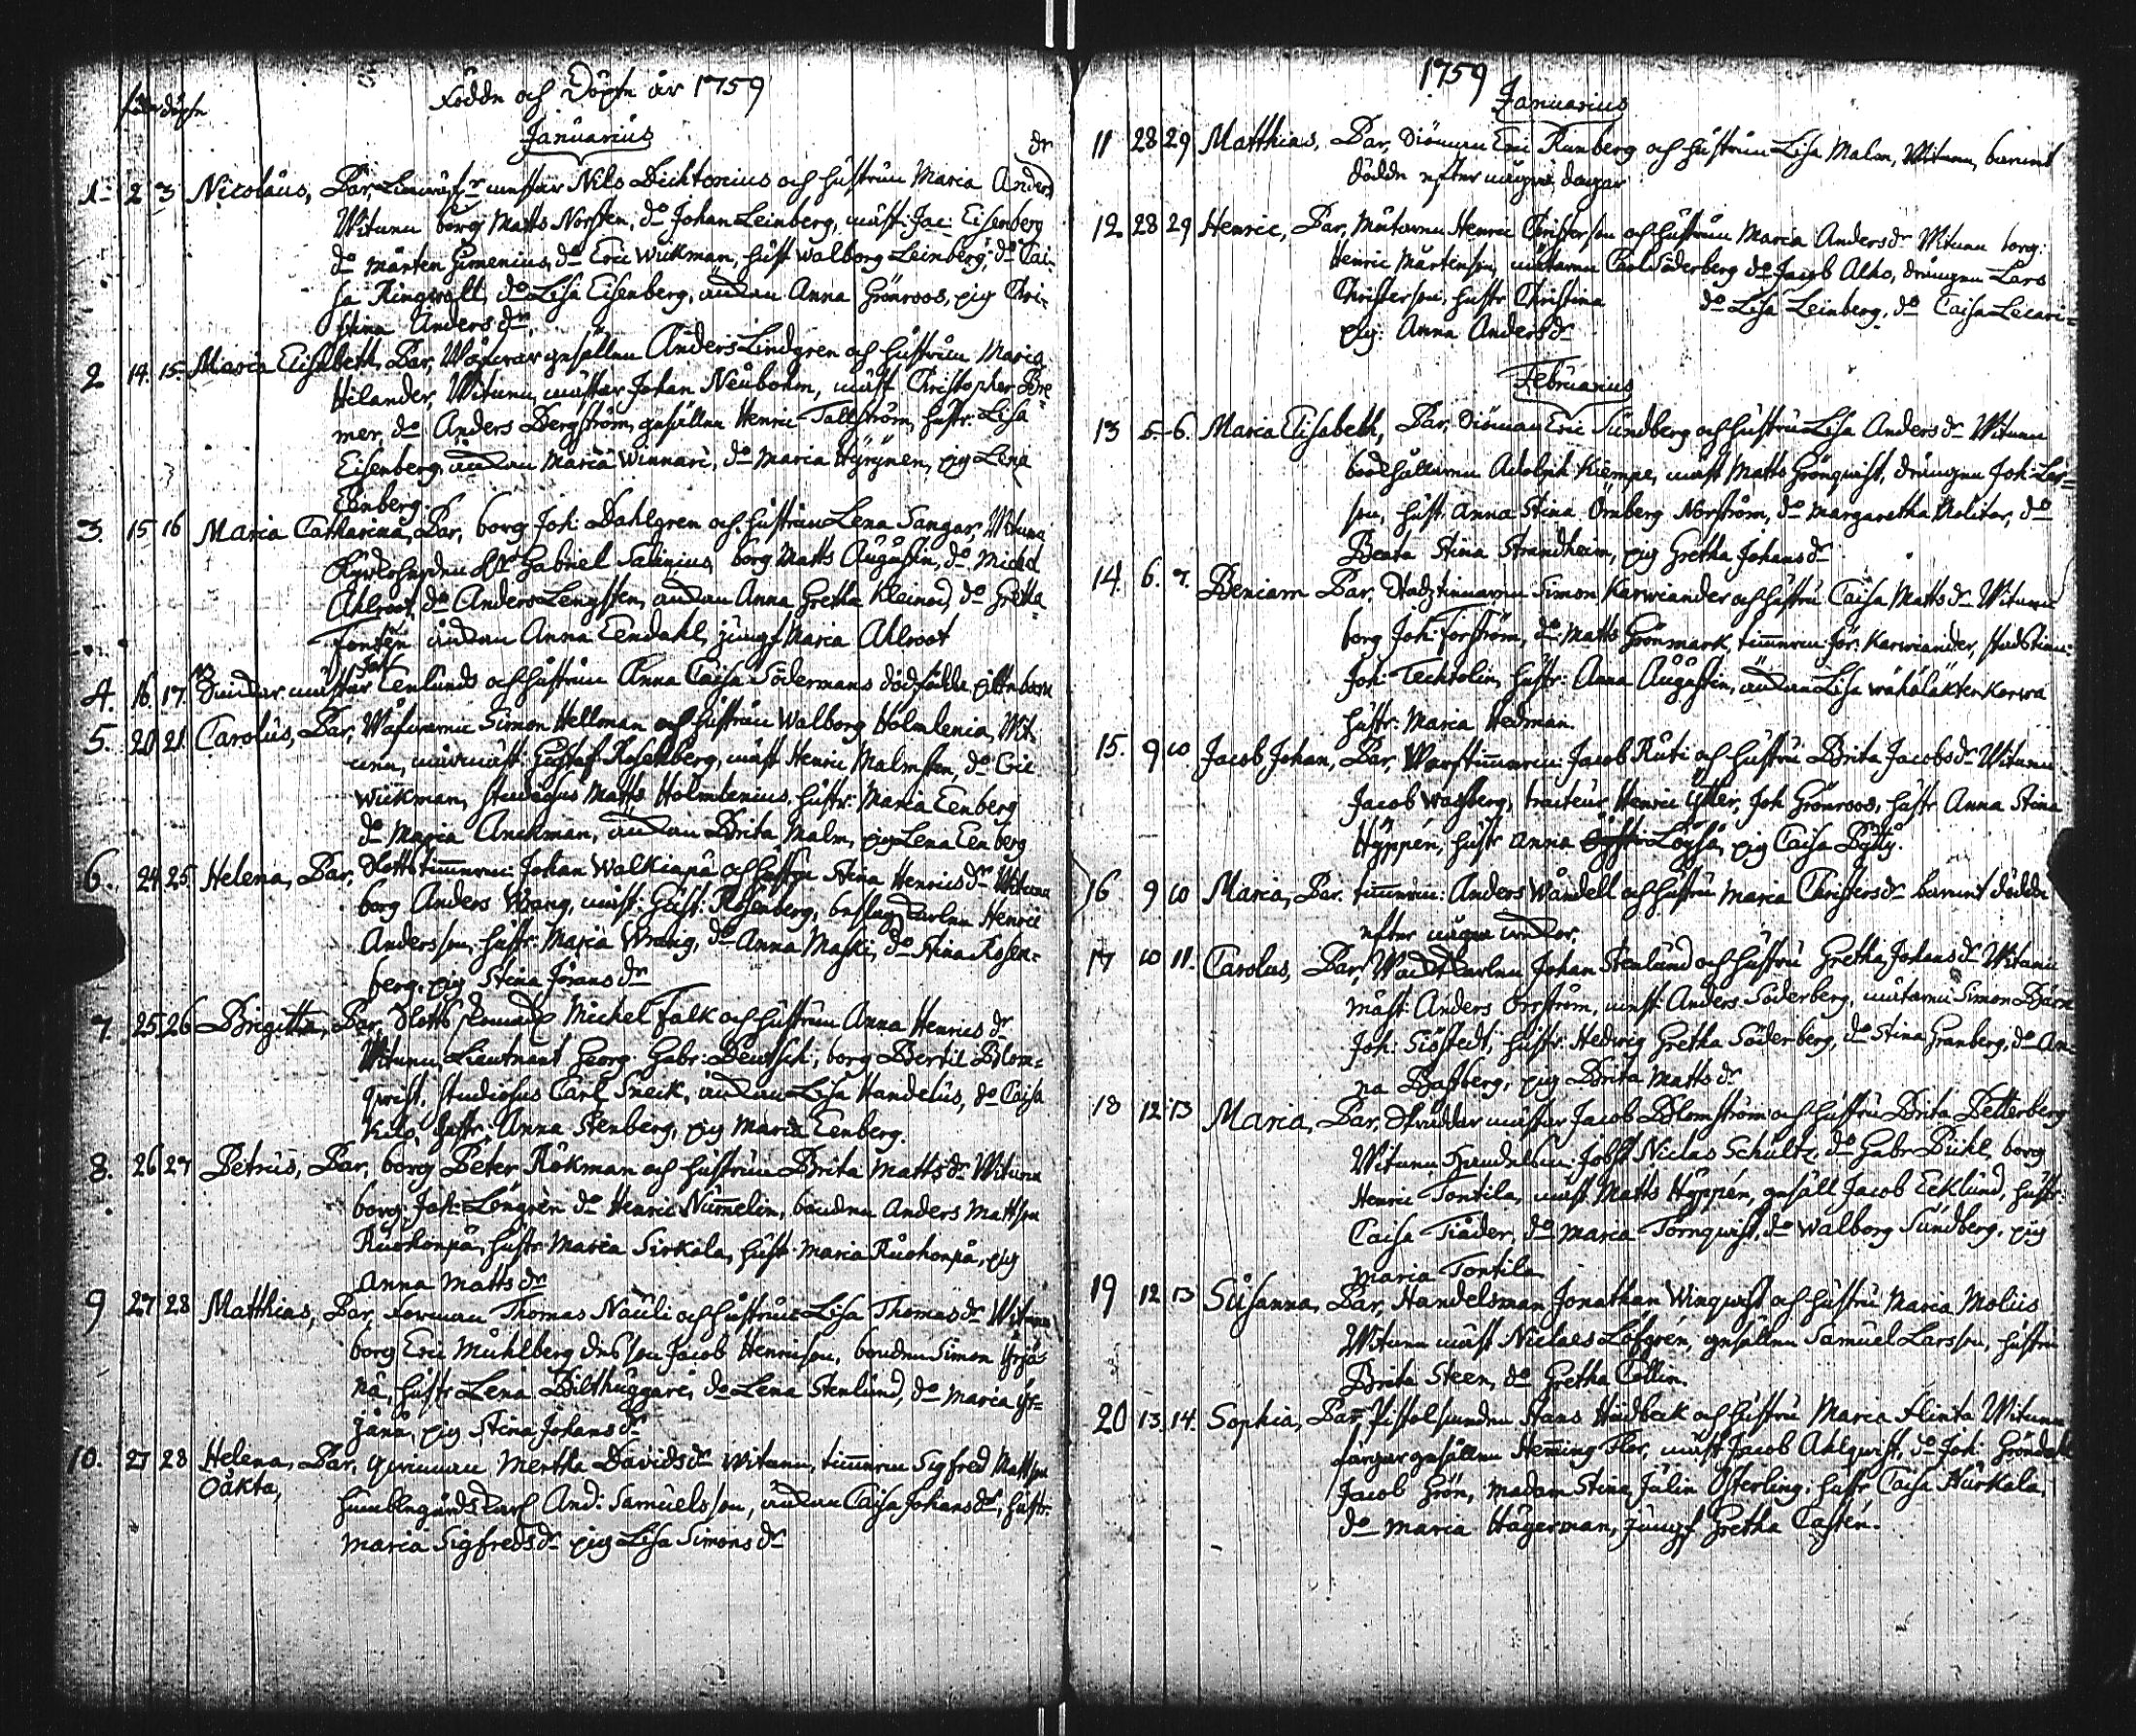 Födde och Döpte år 1759
födde döpte
Januarius
1. 2 3 Nicolaus, Par, mästar Nils Dicktonius och hustrun Maria Andersdr
Witnen borg Matts Norsten, do Johan Leinberg, mäst: Jac: Eisenberg
do Mårten Gimenius, do Eric Wickman, hust Walborg Leinberg, do Cai-
sa Ringwall, do Lisa Eisenberg, änkan Anna Grönroos, pig Chri-
stina Andersdr.
2 14. 15. Maria Elisabeth, Par, Wäfwar gesällen Anders Lindgren och hustrun Maria
Hilander, Witnen, mästar Johan Neübohm, mäst Christopher Bre-
mer, do Anders Bergström, gesällen Henric Tallström, hustr. Lisa
Eisenberg, änkan Maria Winnari, do Maria Hÿrÿnen, pig Lena
Eenberg.
3. 15 16 Maria Catharina, Par, borg Joh: Dahlgren och hustrun Lena Sangar, Witnen
Hr Gabriel Salinius, borg Matts Augustin, do Michel
Ahlroot, do Anders Lengsten, änkan Anna Gretha Kleinod, do Gretha
Fonsén änkan Anna Eendahl, jungf Maria Ahlroot
4. 16. 17. mästar Eenlunds och hustrun Anna Caisa Södermans dödfödda gåssebarn
5. 20 21. Carolus, Par, Wäfwaren Simon Hellman och hustrun Walborg Holmlenia, Wit-
nen, mäst: Gustaf Rosenberg, mäst Henric Malmsten, do Eric
Wickman, studiosus Matts Holmlenius, hustr: Maria Eenberg
do Maria Anckman, änkan Brita Malm, pig Lena Eenberg
6. 24 25 Helena, Par, Slottstimmerm: Johan Walkiapä och hustru Stina Henricsdr Witnen
borg Anders Wrang, mäst: Gust: Rosenberg, Henric
Andersson, hustr: Maria Wrang, do Anna Maski, do Stina Rosen-
berg, pig Stina Jöransdr
7. 25 26 Brigitta, Par, Slotts Michel Falk och hustrun Anna Henricsdr
Witnen, Lieutnant Georg Gabr: Deutsch, borg Bertil Blom-
qwist, studiosus Carl Sneik, änkan Lisa Handelus, do Caisa
Kilp, hustr, Anna Stenberg, pig Maria Eenberg.
8. 26 27 Petrus, Par, borg Peter Rökman och hustrun Brita Mattsdr Witnen
borg: Joh: Löngrén do Henric Nummelin, bonden Anders Mattson
Ruohonpä, hustr Maria Sirkala, hust Maria Ruohonpä, pig
Anna Mattsdr
9 27 28 Matthias, Par, Forman Thomas Nauli och hustrun Lisa Thomasdr Witnen
borg Eric Muhlberg des son Jacob Henricson, bonden Simon Yrjä-
nä, hustr Lena Bilthuggare, do Lena Stenlund, do Maria Yr-
jänä, pig Stina Johansdr
10. 27 28 Helena, Par, qwinnan Mertha Davidsdr Witnen, timmerm Sigfred Mattson
Oäkta, humblegårdskarl And: Samuelsson, änkan Caisa Johansdr, hustr.
Maria Sigfredsdr pig Lisa Simonsdr
1759
Januarius
11 28 29 Matthias, Par, Siöman Eric Runberg och hustrun Lisa Malm, Witnen, barnet
dödde efter några dagar
12 28 29 Henric, Par, Mätaren Henric Christerson och hustrun Maria Andersdr Witnen borg:
Henric Mårtenson, mätaren Carl Söderberg do Jacob Alho, drängen Lars
Christerson, hustr Christina do Lisa Leinberg, do Caisa Lecari-
pig: Anna Andersdr
Februarius
13 5. 6. Maria Elisabeth, Par, Siöman Eric Sundberg och hustru Lisa Andersdr Witnen
bokhållaren Adolph Kiempe, mäst Matts Grönqwist, drängen Joh: Lar-
son, hust: Anna Stina Örnberg Norström, do Margaretha Molitor, do
Beata Stina Strandheim, pig Gretha Johansdr
14. 6. 7. Beniam Par, Stadztienaren Simon Karwiander och hustru Caisa Mattsdr Witnen
borg Joh: Forström, do Matts Grönmark, timmerm Jör: Karwiander,
Joh: Techtolin, hustr: Anna Augustin, änkan Lisa
hustr: Maria Hedman.
15. 9 10 Jacob Johan, Par, Warftimmerm: Jacob Ruti och hustru Brita Jacobsdr Witnen
Jacob Wagberg, traiteur Henric Ytter, Joh Grönroos, hustr Anna Stina
Hyppén, hustr Anna Löysä, pig Caisa Pytty.
16 9 10 Maria, Par. timmerm: Anders Wändell och hustru Maria Christersdr barnet dödde
efter några weckor.
17 10 11. Carolus, Par, Wacktkarlen Johan Stenlund och hustru Gretha Johansdr Witnen
mäst: Anders Orrström, mäst: Anders Söderberg, mätaren Simon Björn
Joh: Siöstedt, hustr: Hedwig Gretha Söderberg, do Stina Granberg, do An-
na Bassberg, pig Brita Mattsdr
18 12 13 Maria, Par, Skräddar mästar Jacob Blomström och hustru Brita Petterberg
Witnen Handelsm: Jobst Niclas Schultz, do Gabr Bükl, borg
Henric Tontila, mäst Matts Hyppén, gesäll Jacob Ecklund, hustr:
Caisa Tiäder, do Maria Törnqwist, do Walborg Sundberg, pig
Maria Tontila
19 12 13 Susanna, Par, Handelsman Jonathan Winqwist och hustru Maria Molius
Witnen mäst Niclaes Löfgrén, gesällen Samuel Larsson, hustru
Brita Steen, do Gretha Collin.
20 13 14. Sophia, Par, Pistolsmeden Hans Hedbeck och hustru Maria Flinta Witnen
färgar gesällen Henning Flor, mäst Jacob Ahlqwist, do Joh: Gröndahl
Jacob Grön, Madam Stina Julin Österling, hustr Caisa Hurkala,
do Maria Hägerman, jungf Gretha Castén.